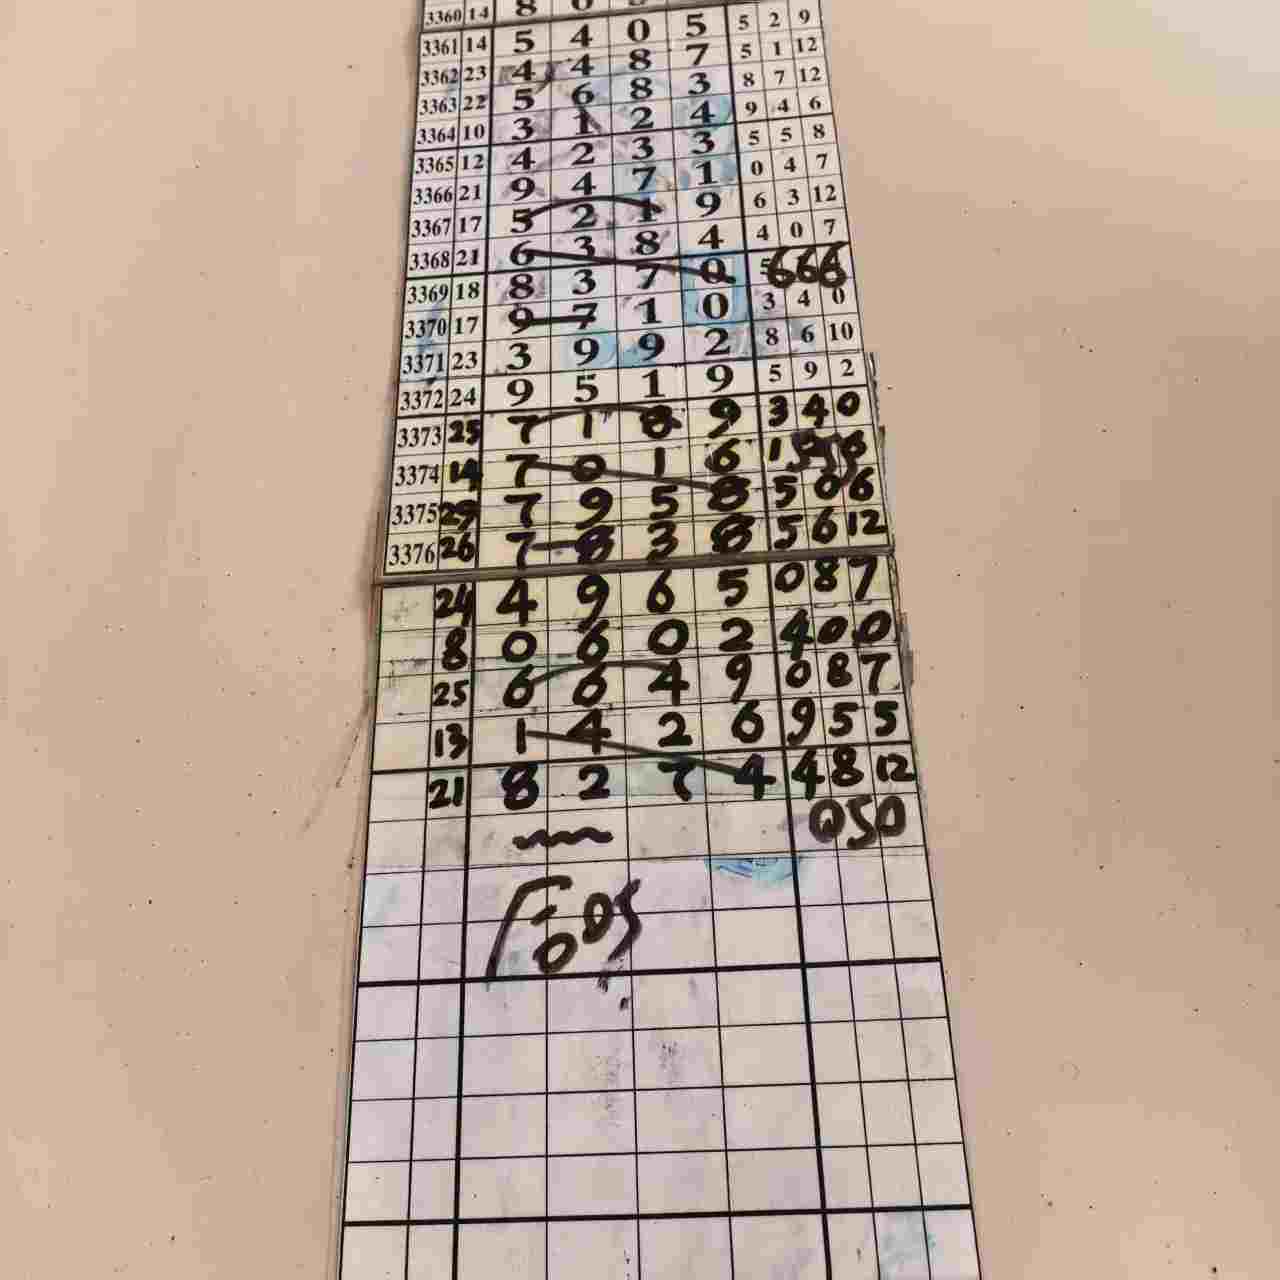 3360 14 8
3361 14 5 4 0 5 5 2 9
3362 23 4 4 8 7 5 1 12
3363 22 5 6 8 3 8 7 12
3364 10 3 1 2 4 9 4 6
3365 12 4 2 3 3 5 5 8
3366 21 9 4 7 1 0 4 7
3367 17 5 2 1 9 6 3 12
3368 21 6 3 8 4 4 0 7
3369 18 8 3 7 0 5 666
3370 17 9 7 1 0 3 4 0
3371 23 3 9 9 2 8 6 10
3372 24 9 5 1 9 5 9 2
3373 25 7 1 8 9 3 4 0
3374 14 7 0 1 6 1
3375 29 7 9 5 8 5 0 6
3376 26 7 8 3 8 5 6 12
24 4 9 6 5 0 8 7
8 0 6 0 2 4 0 0
25 6 6 4 9 0 8 7
13 1 4 2 6 9 5 5
21 8 2 7 4 4 8 12
050